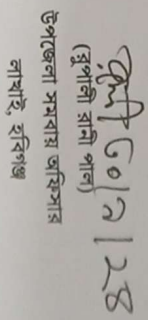 ৩০/৯/২৪
(রুপালী রানী পাল)
উপজেলা সমবায় অফিসার
লাখাই, হবিগঞ্জ